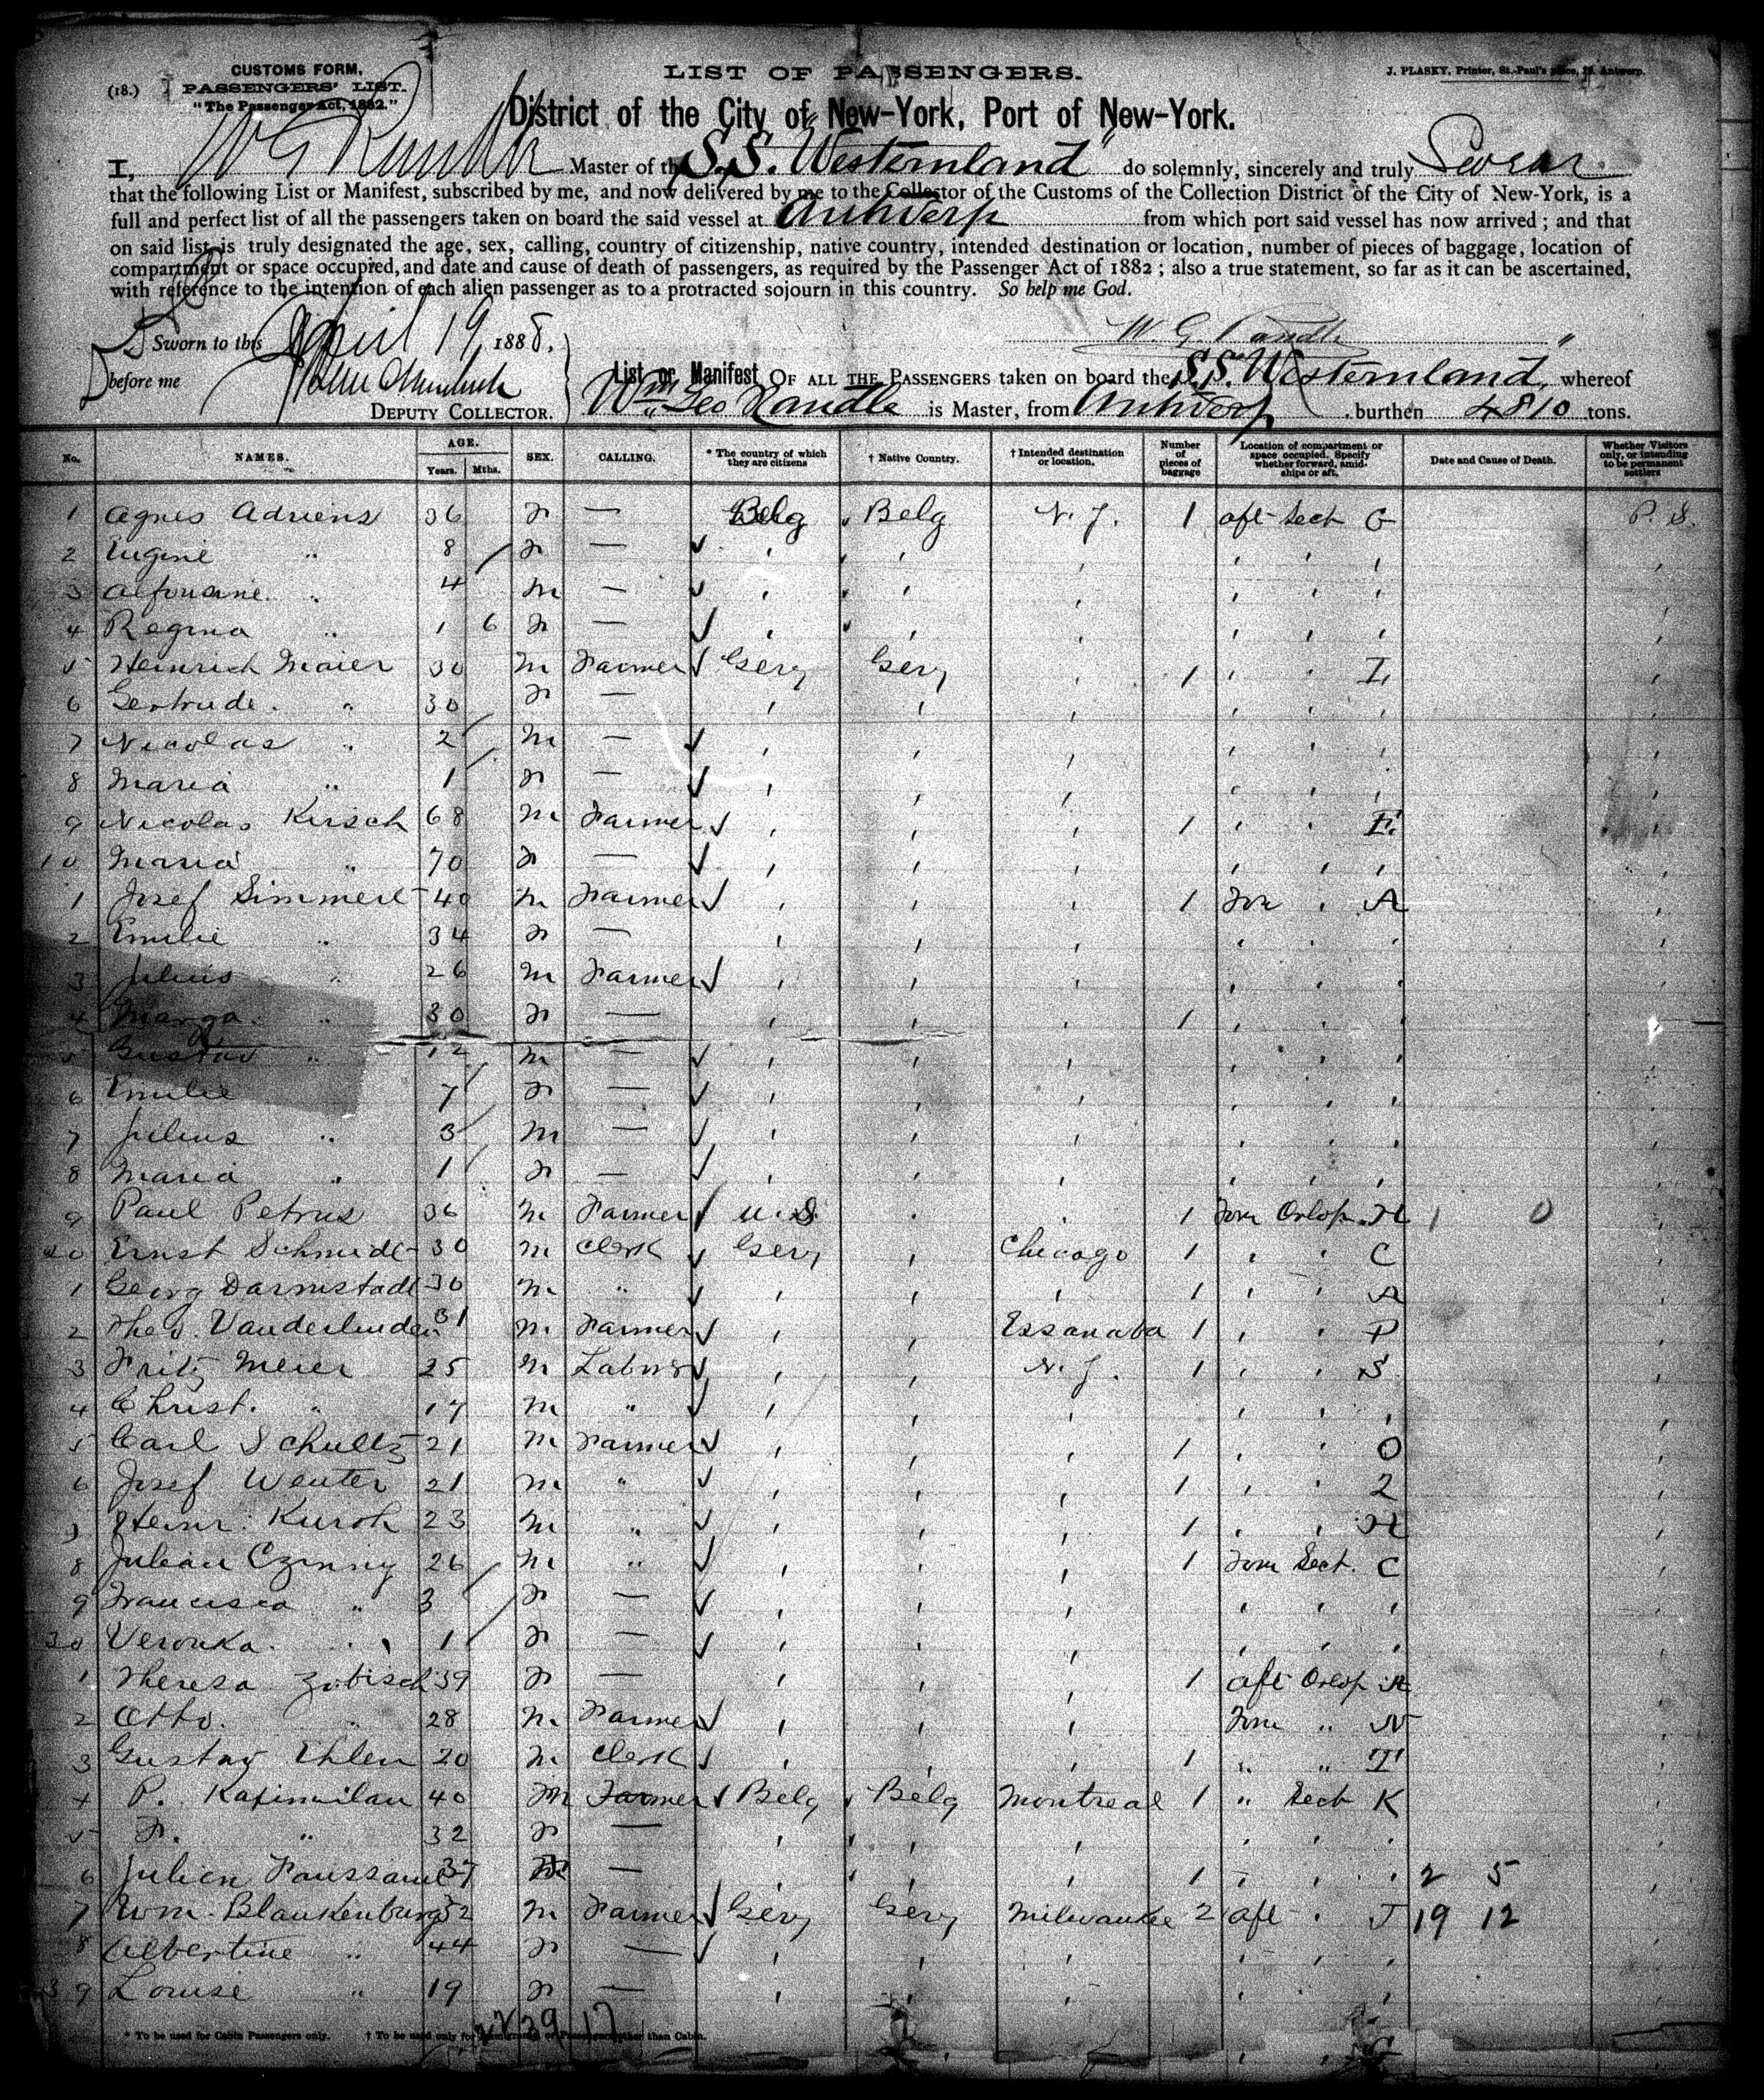 (18.)
CUSTOMS FORM.
PASSENGERS' LIST.
"The Passenger Act, 1882."
LIST OF PASSENGERS.
J. PLASKY, Printer, St.-Paul's place, Antwerp.
District of the City of New-York, Port of New-York.
I, W G Randle Master of the S.S. Westernland" do solemnly, sincerely and truly Swear
that the following List or Manifest, subscribed by me, and now delivered by me to the Collector of the Customs of the Collection District of the City of New-York, is a
full and perfect list of all the passengers taken on board the said vessel at Antwerp from which port said vessel has now arrived ; and that
on said list is truly designated the age, sex, calling, country of citizenship, native country, intended destination or location, number of pieces of baggage, location of
compartment or space occupied, and date and cause of death of passengers, as required by the Passenger Act of 1882 ; also a true statement, so far as it can be ascertained,
with reference to the intention of each alien passenger as to a protracted sojourn in this country. So help me God.
Sworn to this April 19 1888,
W. G. Randle
before me
DEPUTY COLLECTOR.
List or Manifest OF ALL THE PASSENGERS taken on board the S.S. Westernland, whereof
Wm Geo Randle is Master, from Antwerp, burthen 4810 tons.
No. NAMES. AGE. Years. Mths. SEX. CALLING. * The country of which they are citizens † Native Country. † Intended destination or location. Number of pieces of baggage Location of compartment or space occupied. Specify whether forward, amidships or aft. Date and Cause of Death. Whether Visitors only, or intending to be permanent settlers
1 Agnes Adriens 36 F — Belg Belg N. Y. 1 aft Sect G P. S.
2 Eugene " 8 F —
3 Alfonsine " 4 M —
4 Regina " 1 6 F —
5 Heinrich Maier 30 M Farmer Gery Gery 1 I
6 Gertrude " 30 F —
7 Nicolas " 2 M —
8 Maria " 1 F —
9 Nicolas Kirsch 68 M Farmer 1 E
10 Maria " 70 F —
1 Josef Simmert 40 M Farmer 1 For A
2 Emilie " 34 F —
3 Julius " 26 M Farmer
4 Marga " 30 F — 1
5 Gustav " 12 M —
6 Emilie 7 F —
7 Julius " 3 M —
8 Maria " 1 F —
9 Paul Petrus 36 M Farmer U. S. 1 Forw Orlop H 1 0
20 Ernst Schmidt 30 M Clerk Gery Chicago 1 C
1 Georg Darmstadt 30 M " 1 A
2 Theo. Vanderlinden 31 M Farmer Essanaba 1 P
3 Fritz Meier 25 M Labor N. Y. 1 S
4 Christ. " 17 M "
5 Carl Schultz 21 M Farmer 1 O
6 Josef Wenter 21 M " 1 2
7 Heinr. Kuroh 23 M " 1 H
8 Julian Czinny 26 M " 1 Forw Sect. C
9 Francisca " 3 F —
30 Veronka " 1 F —
1 Theresa Zobisch 39 F — 1 aft Orlop A
2 Otto " 28 M Farmer Forw " N
3 Gustav Ehlen 20 M Clerk 1 " " T
4 P. Kaximilan 40 M Farmer Belg Belg Montreal 1 " Sect K
5 F. " 32 F —
6 Julien 37 — 1 2 5
7 Wm. Blankenburg 52 M Farmer Gery Gery Milwaukee 2 aft J 19 12
8 Albertine " 44 F —
39 Louise " 19 F —
* To be used for Cabin Passengers only. † To be used only for Immigrants or Passengers other than Cabin.